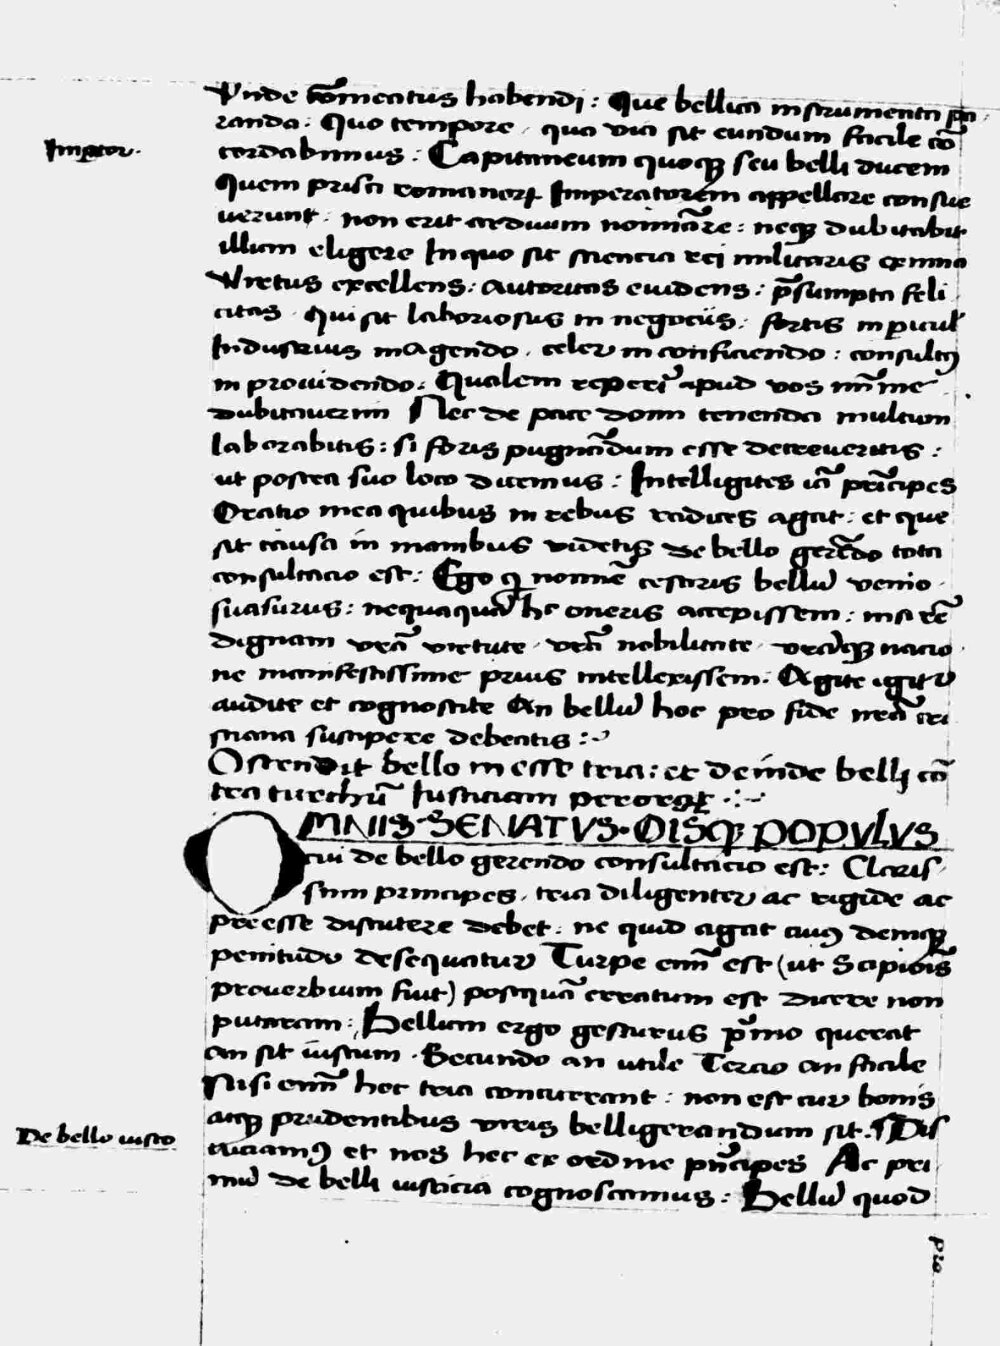 Vnde cōmeatus habendi : Que bellica instrumenta pa
randa : Quo tempore , qua via sit eundum facile cō
cordabimus : Capitaneum quoqꝫ seu belli ducem
Imꝑator .
quem prisci romanorꝝ Imperatorem appellare consue
uerunt : non erit arduum nomīare : neqꝫ dubitabit
illum eligere In quo sit sciencia rei militaris eximia
Virtus excellens : autoritas euidens : p̄sumpta feli
citas . Qui sit laboriosus in negociis : fortis in ꝑicul
Industrius in agendo . celer in conficiendo : consultꝰ
in prouidendo : Qualem reperiri apud vos minīme
dubitauerim Nec de pace domi tenenda multum
laborabitis : si foris pugnādum esse decreueritis :
ut postea suo loco dicemus : Intelligites iā prīcipes
Oratio mea quibus in rebus radices agat : et que
sit causa in manibus videtis de bello gerēdo tota
consultacio est : Ego qͥ nomīe cesaris bellū venio
suasurus : nequaquā hc oneris accepissem : nisi rē
dignam vrā virtute . vrā nobilitate . vrāqꝫ nacio
ne manifestissime prius intellexissem . Agite igitᷣ
audite et cognoscite An bellū hoc pro fide nrā cri
stiana suscipere debeatis :
Ostendit bello in esse tria : et deinde belli cō
tra turchū Iusticiam perorat .
OMNIS SENATVS . OISQꝫ POPVLVS
cui de bello gerendo consultacio est : Claris
simi principes , tria diligenter ac rigide ac
preesse discutere debet : ne quid agat cuiꝰ deniqꝫ
penitudo desequatur Turpe enī est (ut Scipiōis
prouerbium fuit) postquā erratum est dicere non
putaram : Bellum ergo gesturus pͥmo querat
an sit iustum . Secundo an utile Tercio an facile
Nisi enī hec tria concurrant : non est cur bonis
atqꝫ prudentibus viris belligerandum sit . ¶ Dis
De bello iusto
cuciamꝰ et nos hec ex ordine pͥncipes Ac pri
mū de belli iusticia cognoscamus : Bellū quod
pio